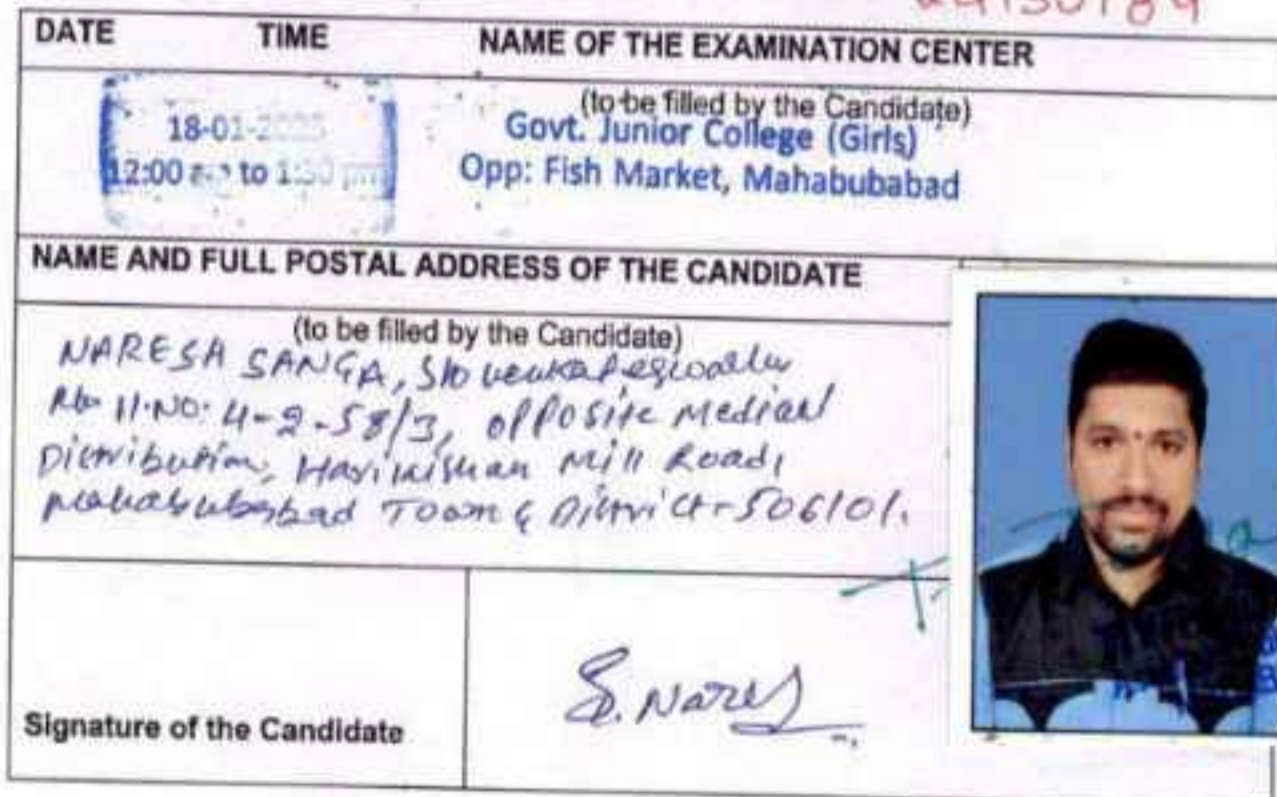 24130184
DATE TIME NAME OF THE EXAMINATION CENTER
(to be filled by the Candidate)
18-01- Govt. Junior College (Girls)
12:00 to 1:30 pm Opp: Fish Market, Mahabubabad
NAME AND FULL POSTAL ADDRESS OF THE CANDIDATE
(to be filled by the Candidate)
NARESH SANGA, S/o
H.NO: 4-2-58/3, opposite Medical
Distribution, Harikishan Mill Road,
Mahabubabad Town & District-506101.
Signature of the Candidate S. Naresh